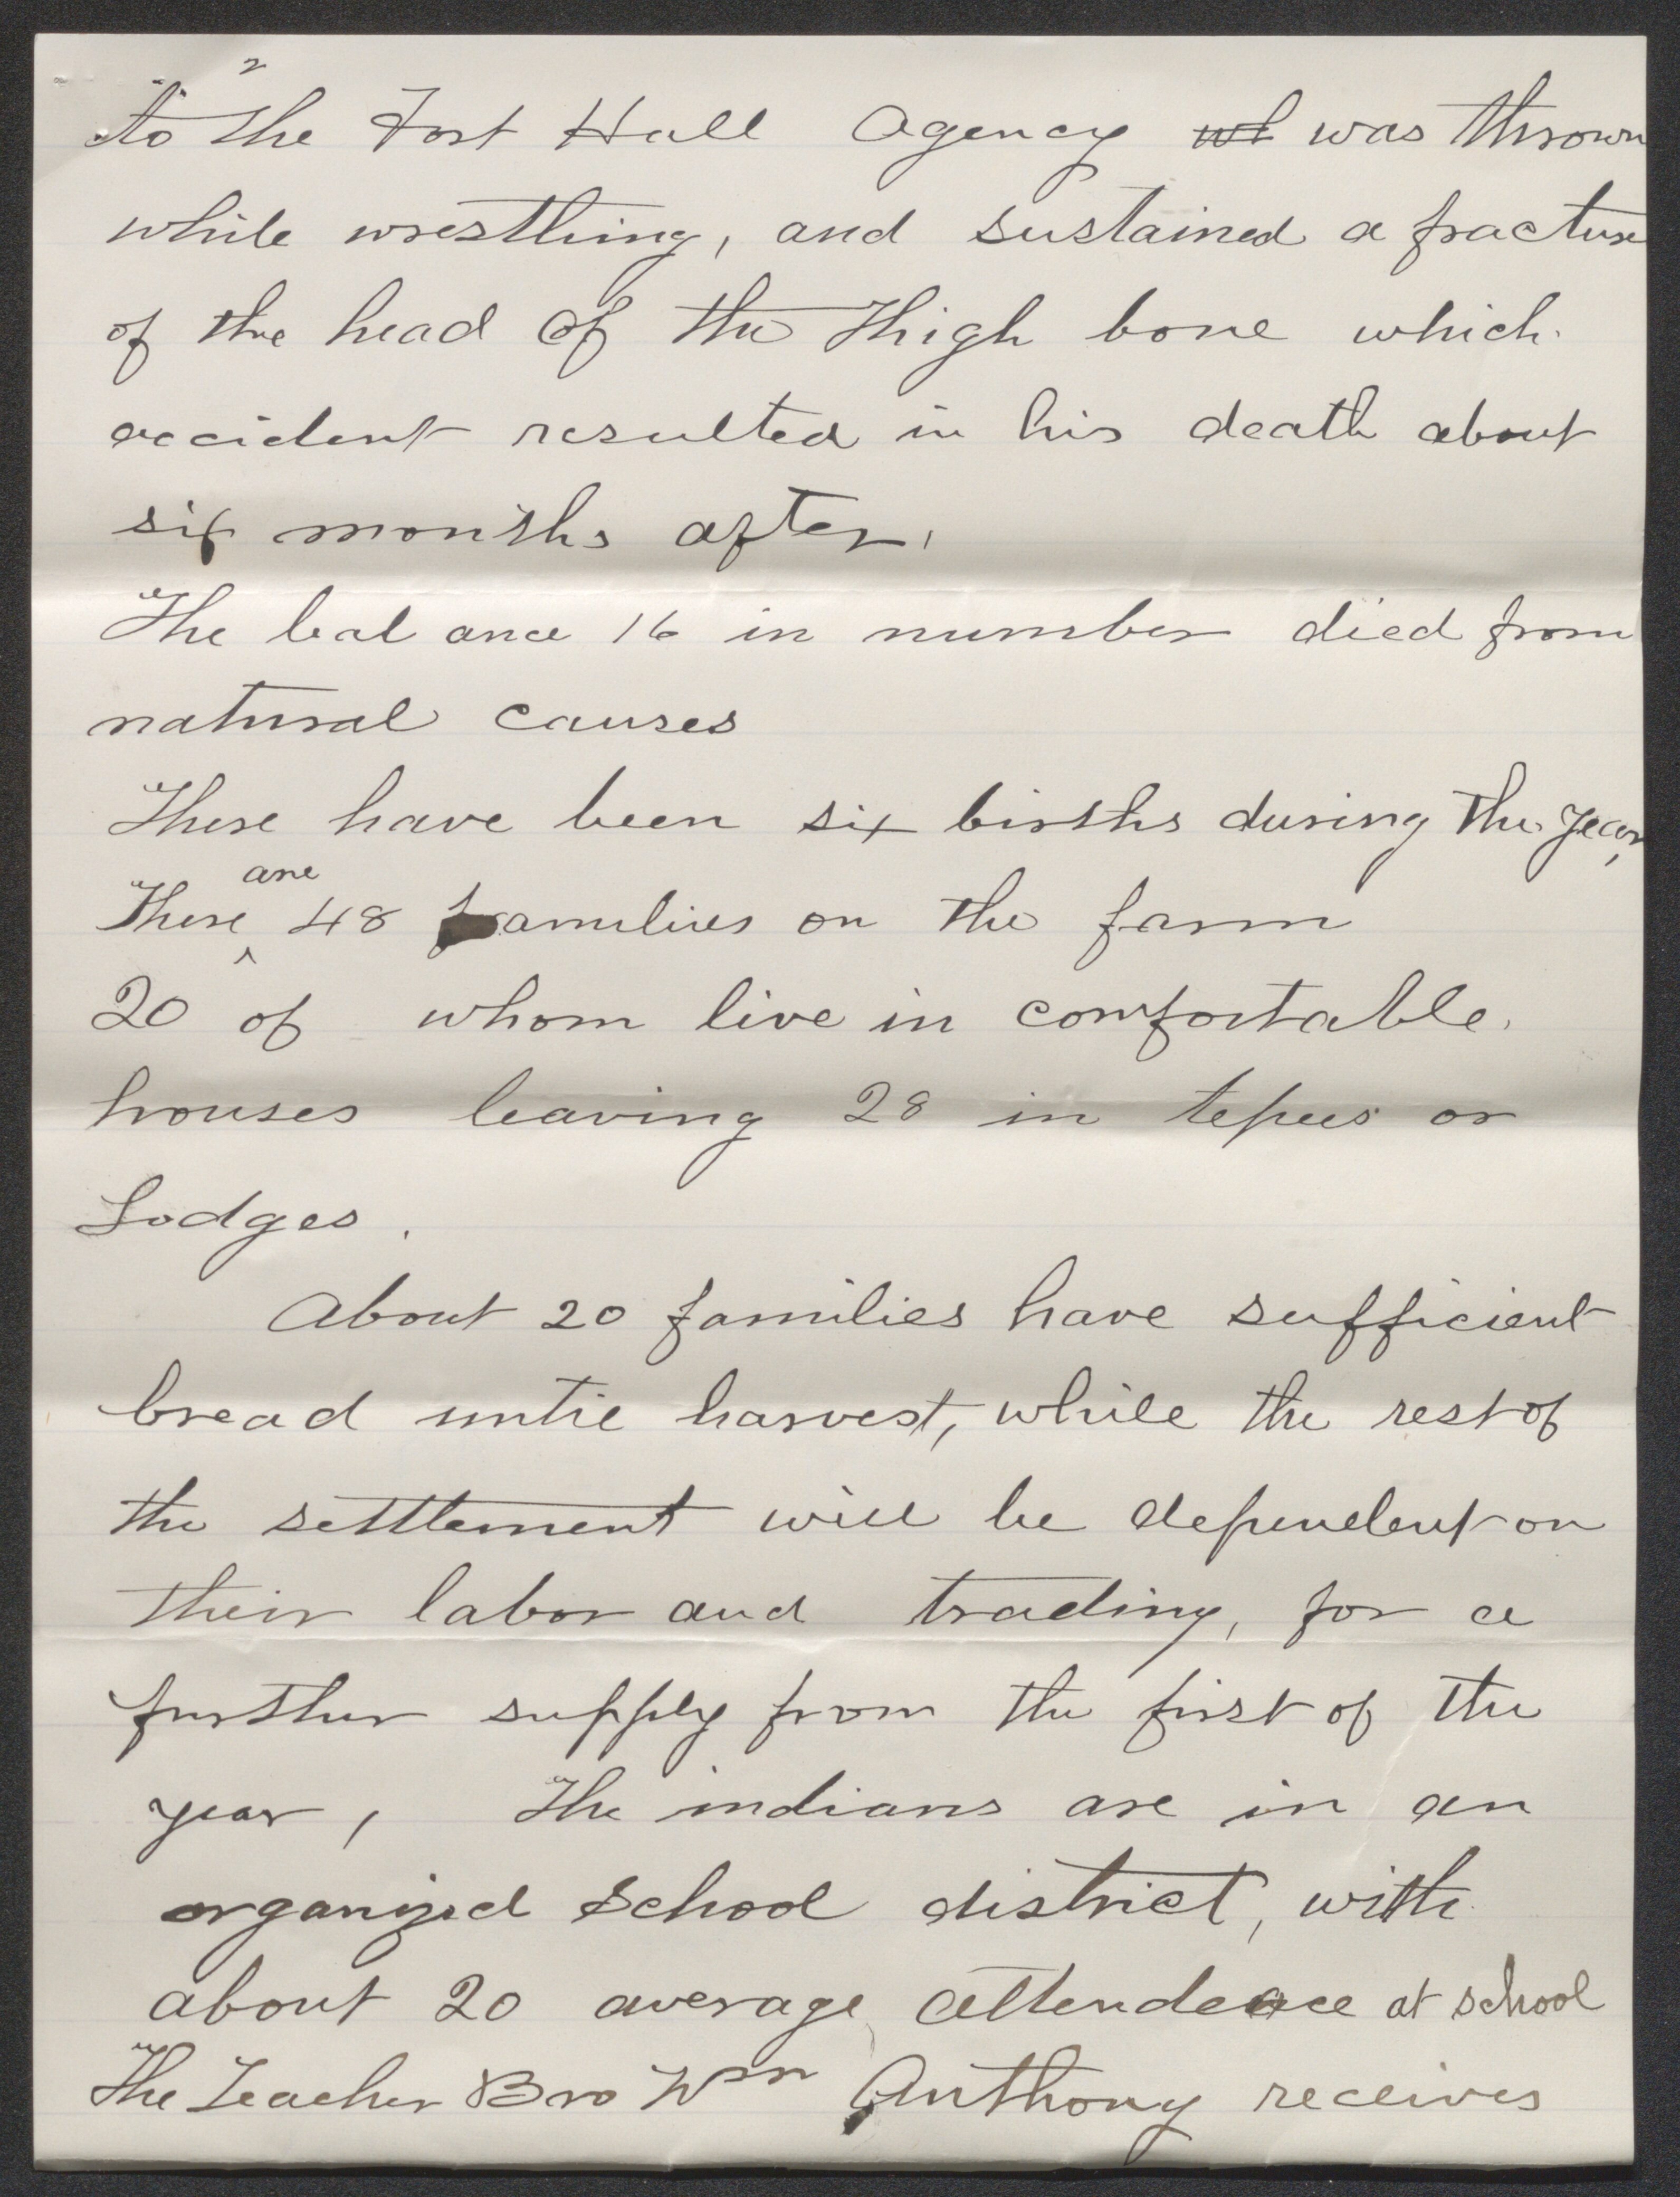 2
to the Fort Hall Agency wh was thrown
while wrestling, and sustained a fracture
of the head of the Thigh bone which
accident resulted in his death about
six months after.
The balance 16 in number died from
natural causes
There have been six births during the year,
There are 48 families on the farm
20 of whom live in comfortable
houses leaving 28 in tepees or
Lodges.
About 20 families have sufficient
bread until harvest, while the rest of
the settlement will be dependent on
their labor and trading, for a
further supply from the first of the
year, The indians are in an
organized school district, with
about 20 average attendence at school
The Teacher Bro Wm Anthony receives